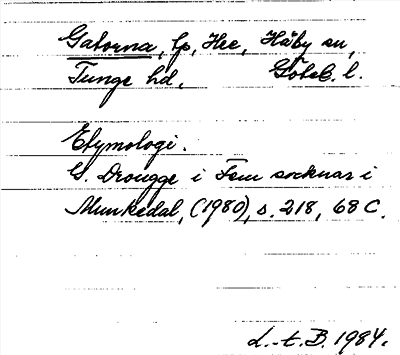 Gatorna, lp, Hee, Håby sn,
Tunge hd, Göteb. l.
Etymologi.
G. Drougge i Fem socknar i
Munkedal, (1980), s. 218, 68 C.
L.-t. B. 1984.